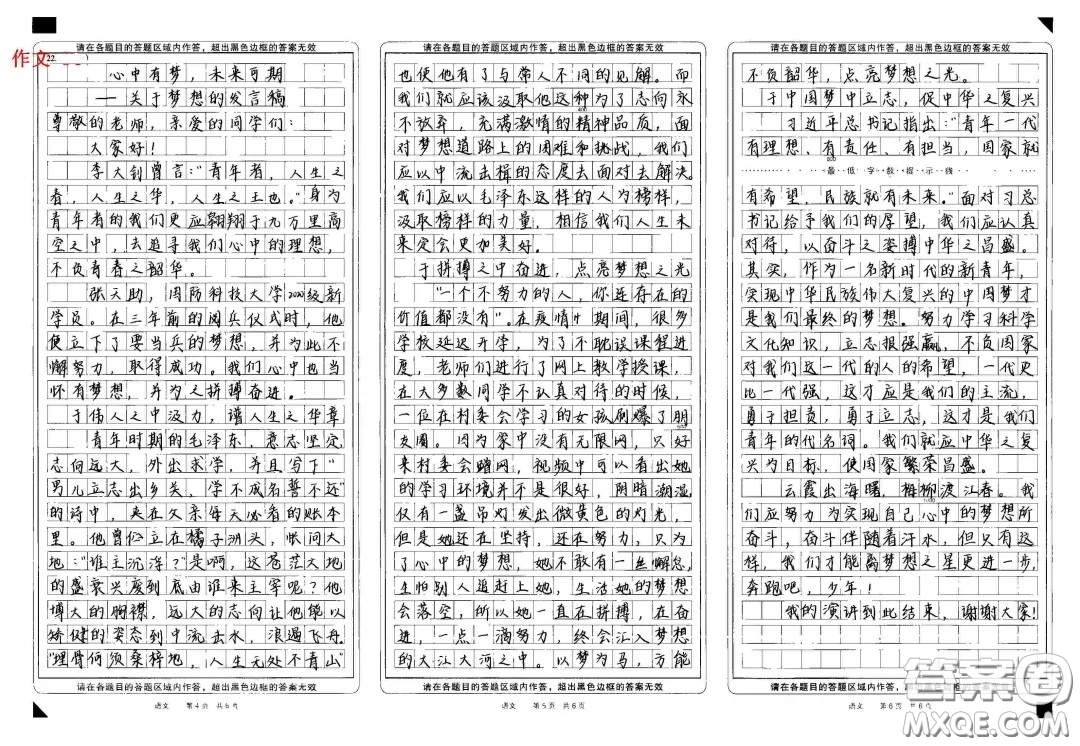 作文
请在各题目的答题区域内作答，超出黑色边框的答案无效
22.
心中有梦，未来可期
——关于梦想的发言稿
尊敬的老师，亲爱的同学们：
大家好！
李大钊曾言：“青年者，人生之
春，人生之华，人生之王也。”身为
青年者的我们更应翱翔于九万里高
空之中，去追寻我们心中的理想，
不负青春之韶华。
张天助，国防科技大学2020级新
学员。在三年前的阅兵仪式时，他
便立下了要当兵的梦想，并为此不
懈努力，取得成功。我们心中也当
怀有梦想，并为之拼搏奋进。
于伟人之中汲力，谱人生之华章
青年时期的毛泽东，意志坚定
志向远大，外出求学，并且写下“
男儿立志出乡关，学不成名誓不还”
的诗中，夹在父亲每天必看的账本
里。他曾伫立在橘子洲头，怅问大
地：“谁主沉浮？”是啊，这苍茫大地
的盛衰兴废到底由谁来主宰呢？他
博大的胸襟，远大的志向让他能以
矫健的姿态到中流击水，浪遏飞舟。
“埋骨何须桑梓地，人生无处不青山”
请在各题目的答题区域内作答，超出黑色边框的答案无效
语文 第4页 共6页
请在各题目的答题区域内作答，超出黑色边框的答案无效
也使他有了与常人不同的见解。而
我们就应该汲取他这种为了志向永
不放弃，充满激情的精神品质，面
对梦想道路上的困难和挑战，我们
应以中流击楫的态度去面对去解决
我们应以毛泽东这样的人为榜样，
汲取榜样的力量，相信我们人生未
来定会更加美好。
于拼搏之中奋进，点亮梦想之光
“一个不努力的人，你连存在的
价值都没有”。在疫情期间，很多
学校延迟开学，为了不耽误课程进
度，老师们进行了网上教学授课，
在大多数同学不认真对待的时候，
一位在村委会学习的女孩刷爆了朋
友圈。因为家中没有无限网，只好
来村委会蹭网，视频中可以看出她
的学习环境并不是很好，阴暗潮湿，
仅有一盏吊灯发出微黄色的灯光，
但是她还在坚持，还在努力，只为
了心中的梦想，她不敢有一丝懈怠，
生怕别人追赶上她，生活她的梦想
会落空，所以她一直在拼搏，在奋
进，一点一滴努力，终会汇入梦想
的大江大河之中。以梦为马，方能
请在各题目的答题区域内作答，超出黑色边框的答案无效
语文 第5页 共6页
请在各题目的答题区域内作答，超出黑色边框的答案无效
不负韶华，点亮梦想之光。
于中国梦中立志，促中华之复兴
习近平总书记指出：“青年一代
有理想、有责任、有担当，国家就
800
最低字数提示线
有希望，民族就有未来。”面对习总
书记给予我们的厚望，我们应认真
对待，以奋斗之姿搏中华之昌盛。
其实，作为一名新时代的新青年，
实现中华民族伟大复兴的中国梦才
是我们最终的梦想。努力学习科学
文化知识，立志报强赢，不负国家
对我们这一代的人的希望，一代更
比一代强，这才应是我们的主流，
勇于担责，勇于立志，这才是我们
青年的代名词。我们就应中华之复
兴为目标，使国家繁荣昌盛。
云霞出海曙，梅柳渡江春。我
们应努力为实现自己心中的梦想所
奋斗，奋斗伴随着汗水，但只有这
样，我们才能离梦想之星更进一步，
奔跑吧，少年！
我的演讲到此结束，谢谢大家！
请在各题目的答题区域内作答，超出黑色边框的答案无效
语文 第6页 共6页
答案圈
MXQE.COM